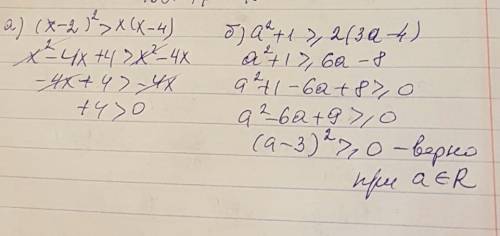 а) (x-2)²>x(x-4)
x²-4x+4>x²-4x
-4x+4>-4x
+4>0
б) a²+1⩾2(3a-4)
a²+1⩾6a-8
a²+1-6a+8⩾0
a²-6a+9⩾0
(a-3)²⩾0 - верно
при a∈R